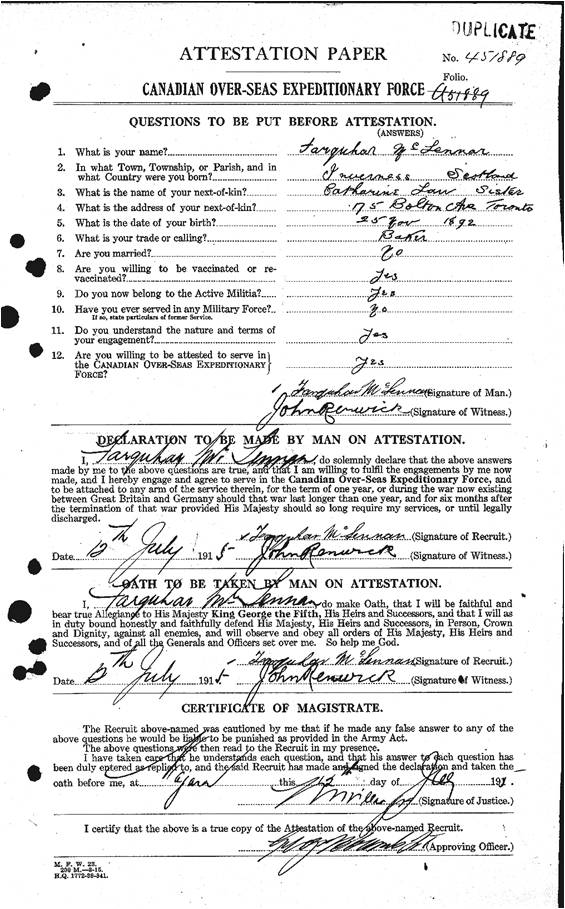 DUPLICATE
ATTESTATION PAPER
No. 451889
Folio.
CANADIAN OVER-SEAS EXPEDITIONARY FORCE
451889
QUESTIONS TO BE PUT BEFORE ATTESTATION.
(ANSWERS)
1. What is your name? Farquhar McLennan
2. In what Town, Township, or Parish, and in
what Country were you born? Inverness Scotland
3. What is the name of your next-of-kin? Catharine Law Sister
4. What is the address of your next-of-kin? 175 Bolton Ave Toronto
5. What is the date of your birth? 25 Nov 1892
6. What is your trade or calling? Baker
7. Are you married? No
8. Are you willing to be vaccinated or re-
vaccinated? Yes
9. Do you now belong to the Active Militia? Yes
10. Have you ever served in any Military Force? No
If so, state particulars of former Service.
11. Do you understand the nature and terms of
your engagement? Yes
12. Are you willing to be attested to serve in
the CANADIAN OVER-SEAS EXPEDITIONARY Yes
FORCE?
Farquhar McLennan (Signature of Man.)
John Renwick (Signature of Witness.)
DECLARATION TO BE MADE BY MAN ON ATTESTATION.
I, Farquhar McLennan, do solemnly declare that the above answers
made by me to the above questions are true, and that I am willing to fulfil the engagements by me now
made, and I hereby engage and agree to serve in the Canadian Over-Seas Expeditionary Force, and
to be attached to any arm of the service therein, for the term of one year, or during the war now existing
between Great Britain and Germany should that war last longer than one year, and for six months after
the termination of that war provided His Majesty should so long require my services, or until legally
discharged.
Farquhar McLennan (Signature of Recruit.)
Date 12th July 1915 John Renwick (Signature of Witness.)
OATH TO BE TAKEN BY MAN ON ATTESTATION.
I, Farquhar McLennan do make Oath, that I will be faithful and
bear true Allegiance to His Majesty King George the Fifth, His Heirs and Successors, and that I will as
in duty bound honestly and faithfully defend His Majesty, His Heirs and Successors, in Person, Crown
and Dignity, against all enemies, and will observe and obey all orders of His Majesty, His Heirs and
Successors, and of all the Generals and Officers set over me. So help me God.
Farquhar McLennan (Signature of Recruit.)
Date 12th July 1915 John Renwick (Signature of Witness.)
CERTIFICATE OF MAGISTRATE.
The Recruit above-named was cautioned by me that if he made any false answer to any of the
above questions he would be liable to be punished as provided in the Army Act.
The above questions were then read to the Recruit in my presence.
I have taken care that he understands each question, and that his answer to each question has
been duly entered as replied to, and the said Recruit has made and signed the declaration and taken the
oath before me, at this 12 day of July 191 .
(Signature of Justice.)
I certify that the above is a true copy of the Attestation of the above-named Recruit.
(Approving Officer.)
M. F. W. 23.
200 M.—8-15.
H.Q. 1772-39-841.